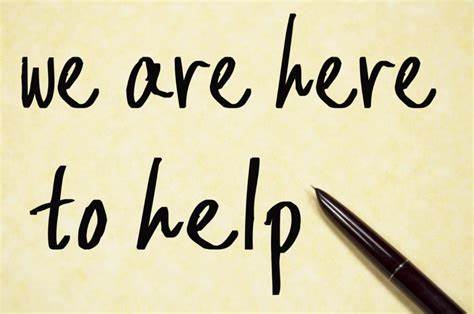 we are here
to help